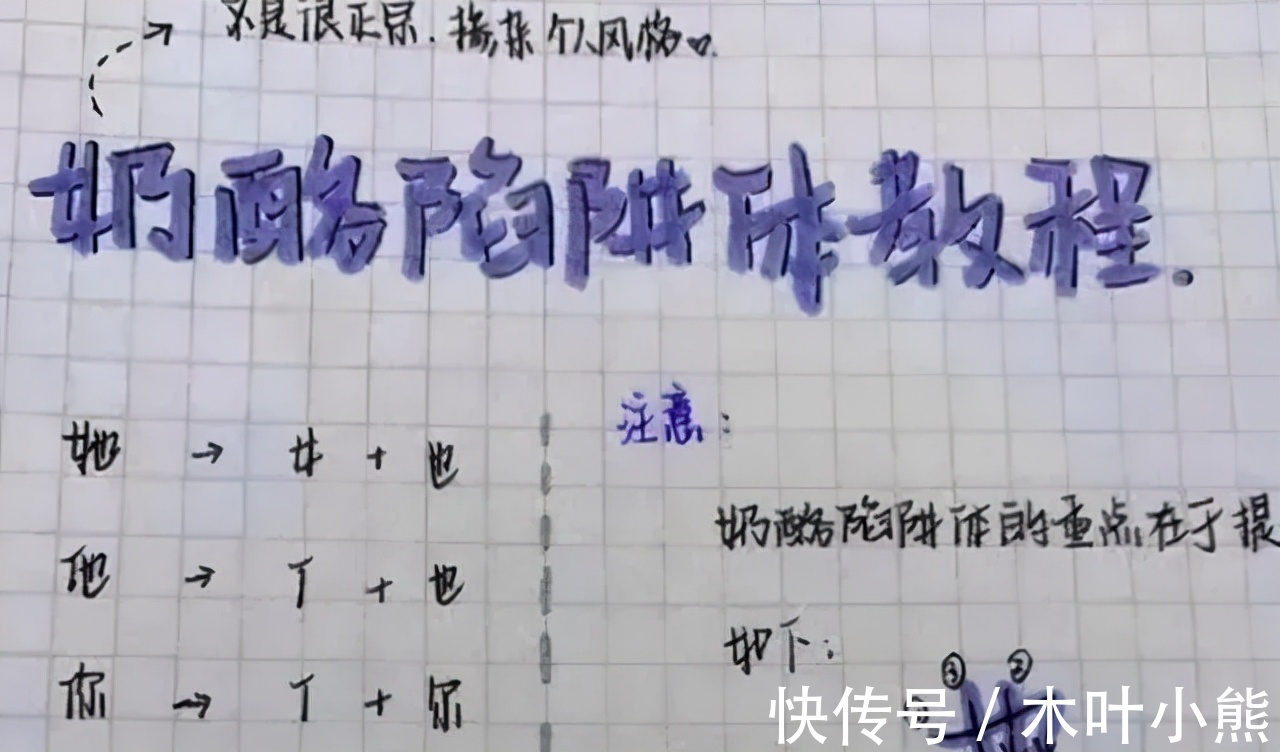 不是很正宗.掺杂个人风格。
奶酪陷阱体教程.
注意:
她 → 女 + 也
奶酪陷阱体的重点在于提
他 → 亻 + 也
如下:
你 → 亻 + 尔
① ②
快传号 / 木叶小熊